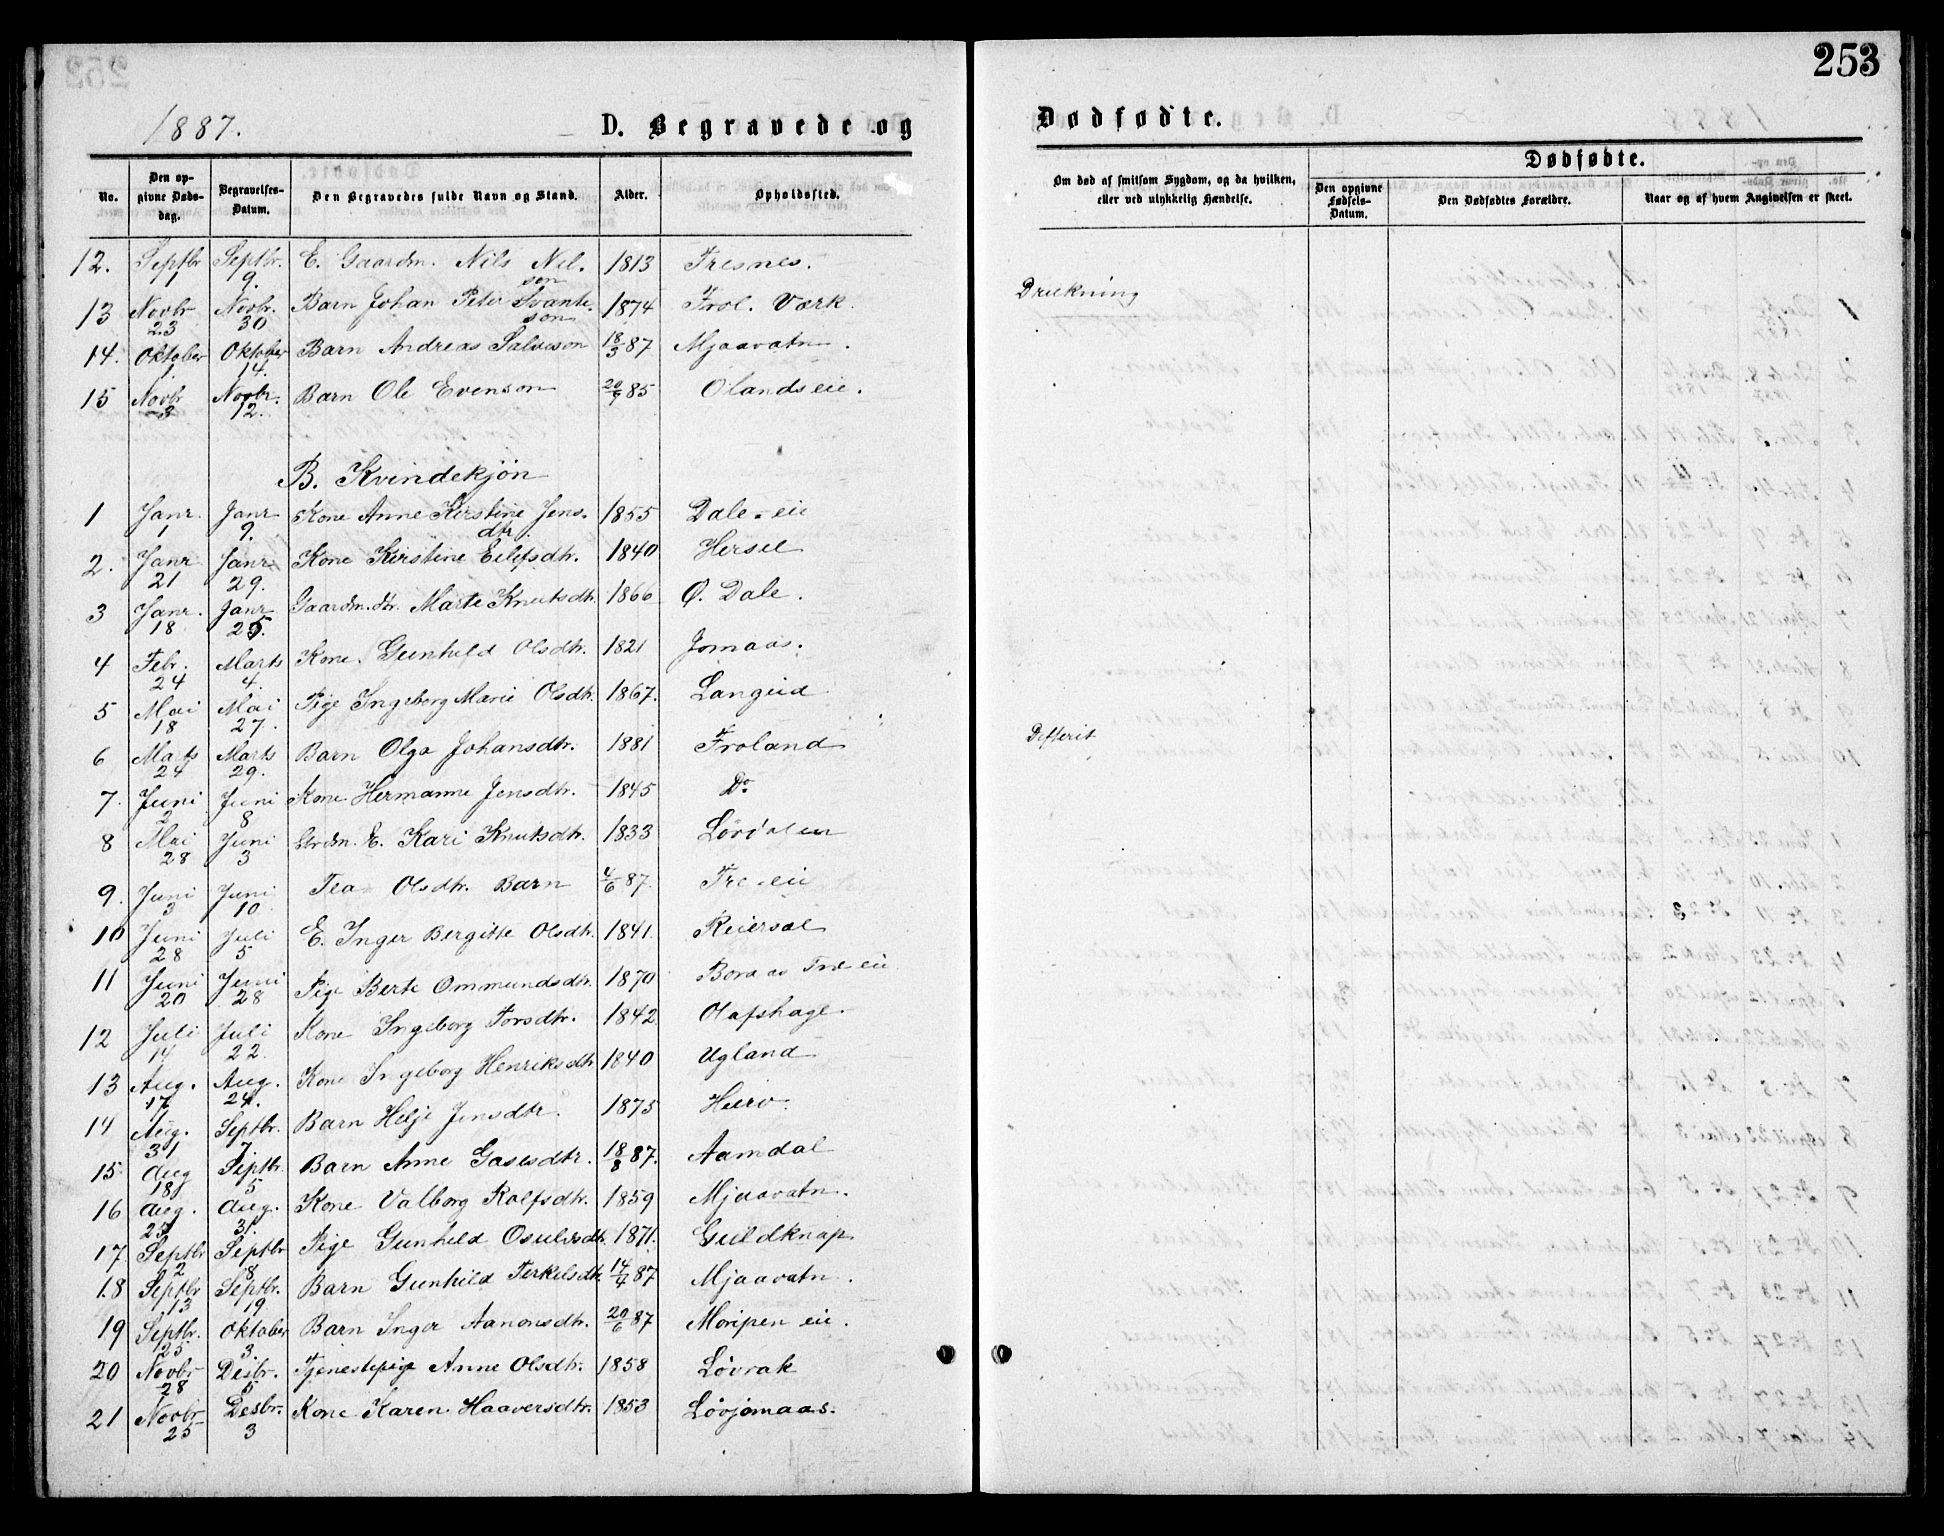 253
1887.
D. Begravede og
Dødfødte.
No.
Den opgivne Dødsdag.
Begravelses-Datum.
Den Begravedes fulde Navn og Stand.
Alder.
Opholdssted.
Om død af smitsom Sygdom, og da hvilken, eller ved ulykkelig Hændelse.
Dødfødte.
Den opgivne Fødsels-Datum.
Den Dødfødtes Forældre.
Naar og af hvem Angivelsen er skeet.
12. Septbr 1 Septbr. 9. E. Gaardm. Nils Nilson 1813 Tresnes.
13 Novbr 23 Novbr. 30 Barn Johan Peter Svanteson 1874 Frol. Værk. Drukning
14. Oktober 1. Oktober 14. Barn Andreas Salveson 18/3 87 Mjaavatn.
15 Novbr 3 Novbr. 12. Barn Ole Evenson 20/9 85 Olandseie.
B. Kvindekjøn
1 Janr. 1 Janr 9. Kone Anne Kirstine Jensdtr. 1855 Dale-eie
2. Janr 21 Janr 29. Kone Kirstine Eilefsdtr. 1840 Hersel
3 Janr. 18 Janr 25. Gaardm.dtr. Marte Knutsdtr. 1866 Ø. Dale.
4 Febr. 24 Marts 4. Kone Gunhild Olsdtr. 1821 Jomaas.
5 Mai 18 Mai 27. Pige Ingeborg Marie Olsdtr. 1867. Langeid
6 Marts 24 Marts 29. Barn Olga Johansdtr. 1881 Froland Difterit
7. Juni 2 Juni 8 Kone Hermanne Jensdtr. 1845 Do
8 Mai 28 Juni 3 E. Kari Knutsdtr. 1833 Lørdalen
9. Juni 3 Juni 10 Tea Olsdtr. Barn 4/6 87. Tre-eie
10 Juni 28 Juli 5 E. Inger Bergitte Olsdtr. 1841. Reiersøl
11 Juni 20 Juni 28 Pige Berte Ommundsdtr. 1870 Boraas Træ eie
12 Juli 14 Juli 22. Kone Ingeborg Torsdtr. 1842 Olafshage.
13 Aug. 17 Aug. 24. Kone Ingeborg Henriksdtr 1840 Ugland
14 Aug. 31 Septbr. 7. Barn Helje Jensdtr. 1875 Heirø.
15 Aug 18 Septbr. 5 Barn Anne Gasesdtr. 18/8 87. Aamdal
16 Aug. 23 Aug. 31. Kone Valborg Rolfsdtr. 1859 Mjaavatn.
17 Septbr 2 Septbr 8 Pige Gunhild Osulvsdtr. 1871. Guldknap
18 Septbr 13 Septbr. 19 Barn Gunhild Terkelsdtr. 14/4 87 Mjaavatn.
19 Septbr. 25 Oktober 3. Barn Inger Aanonsdtr. 20/6 87 Moripen eie.
20 Novbr 28 Desbr. 5 Tjenestepige Anne Olsdtr. 1858 Løvrak
21 Novbr 25 Desbr. 3 Kone Karen Haaversdtr. 1853 Løvjomaas.